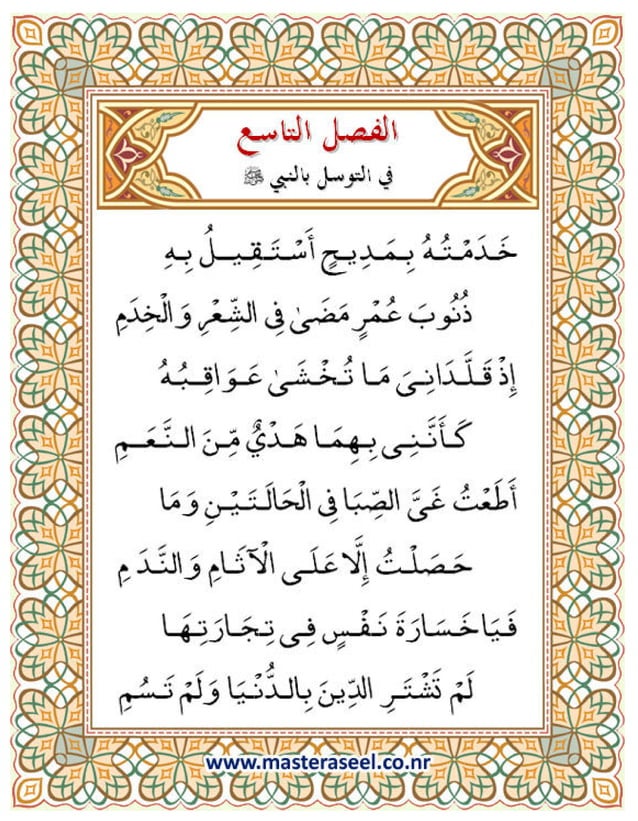 الفصل التاسع
في التوسل بالنبي ﷺ
خَدَمْتُهُ بِمَدِيحٍ أَسْتَقِيلُ بِهِ
ذُنُوبَ عُمْرٍ مَضَىٰ فِى الشِّعْرِ وَالْخِدَمِ
إِذْ قَلَّدَانِىَ مَا تُخْشَىٰ عَوَاقِبُهُ
كَأَنَّنِى بِهِمَا هَدْىٌ مِّنَ النَّعَمِ
أَطَعْتُ غَىَّ الصِّبَا فِى الْحَالَتَيْنِ وَمَا
حَصَلْتُ إِلَّا عَلَى الْآثَامِ وَالنَّدَمِ
فَيَا خَسَارَةَ نَفْسٍ فِى تِجَارَتِهَا
لَمْ تَشْتَرِ الدِّينَ بِالدُّنْيَا وَلَمْ تَسُمِ
www.masteraseel.co.nr